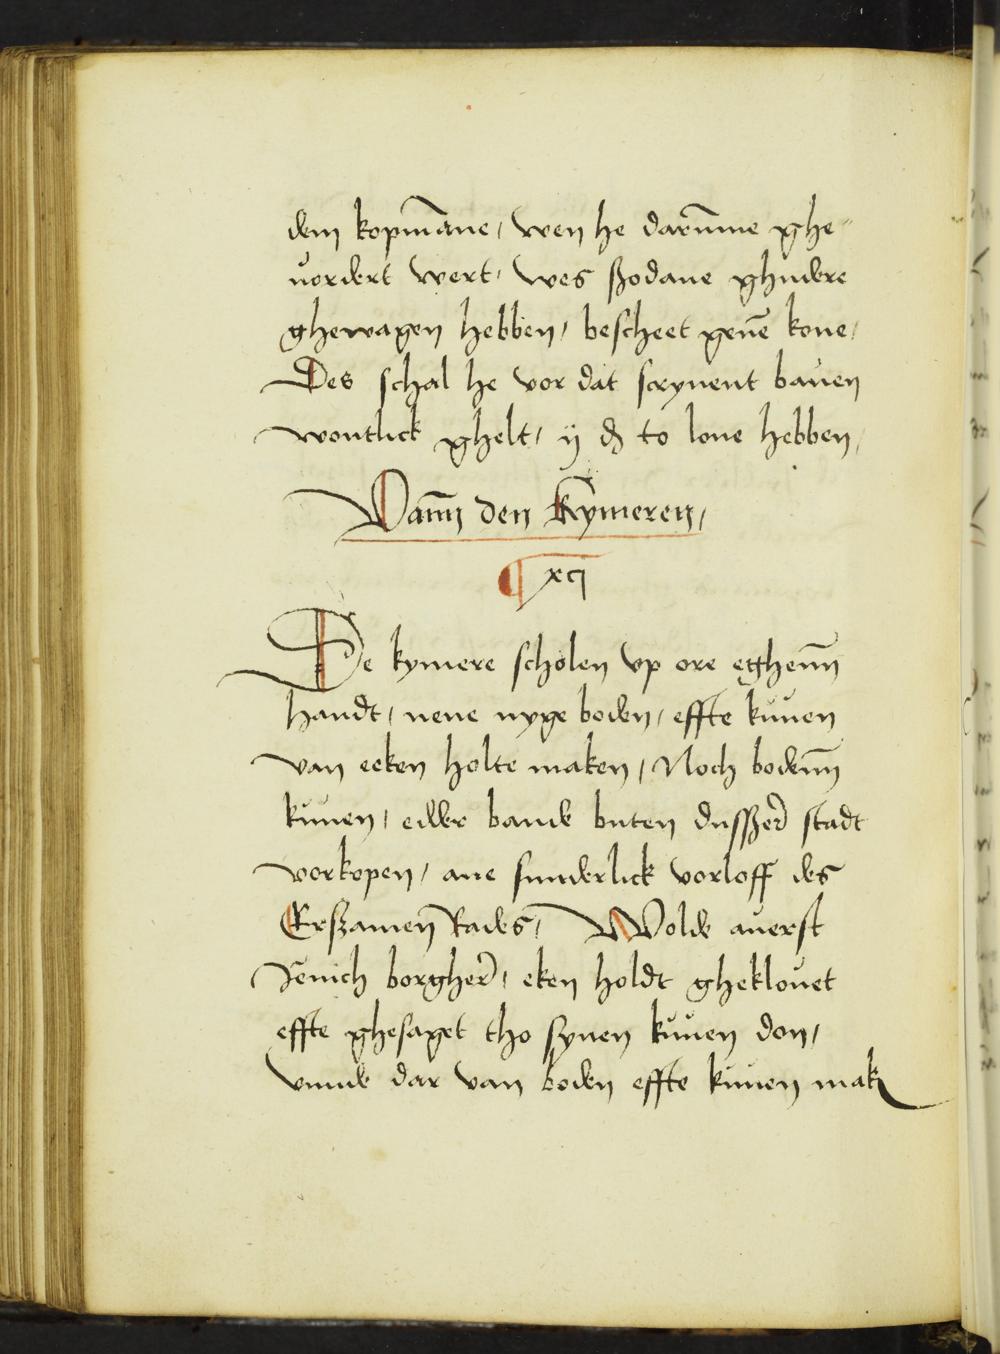 dem kopmāne, wen he darūme ghe⸗
uordert wert, wes ßodane ghudere
ghewagen hebben, bescheet geuē kone,
Des schal he vor dat scryuent bauen
wontlick ghelt, ij ₰ to lone hebben,
Vann den kymeren,
¶ xcj
De kymere scholen vp ore eghenn
handt, nene nyge boden, effte kuuen
van eeken holte maken, Noch bodenn
kuuen, edder bande buten dusßer stadt
vorkopen, ane sunderlick vorloff des
Erßamen Rades, Wolde auerst
Jenich borgher, eken holdt gheklouet
effte ghesaget tho synen kuuen don,
vnnde dar van boden effte kuuen mak